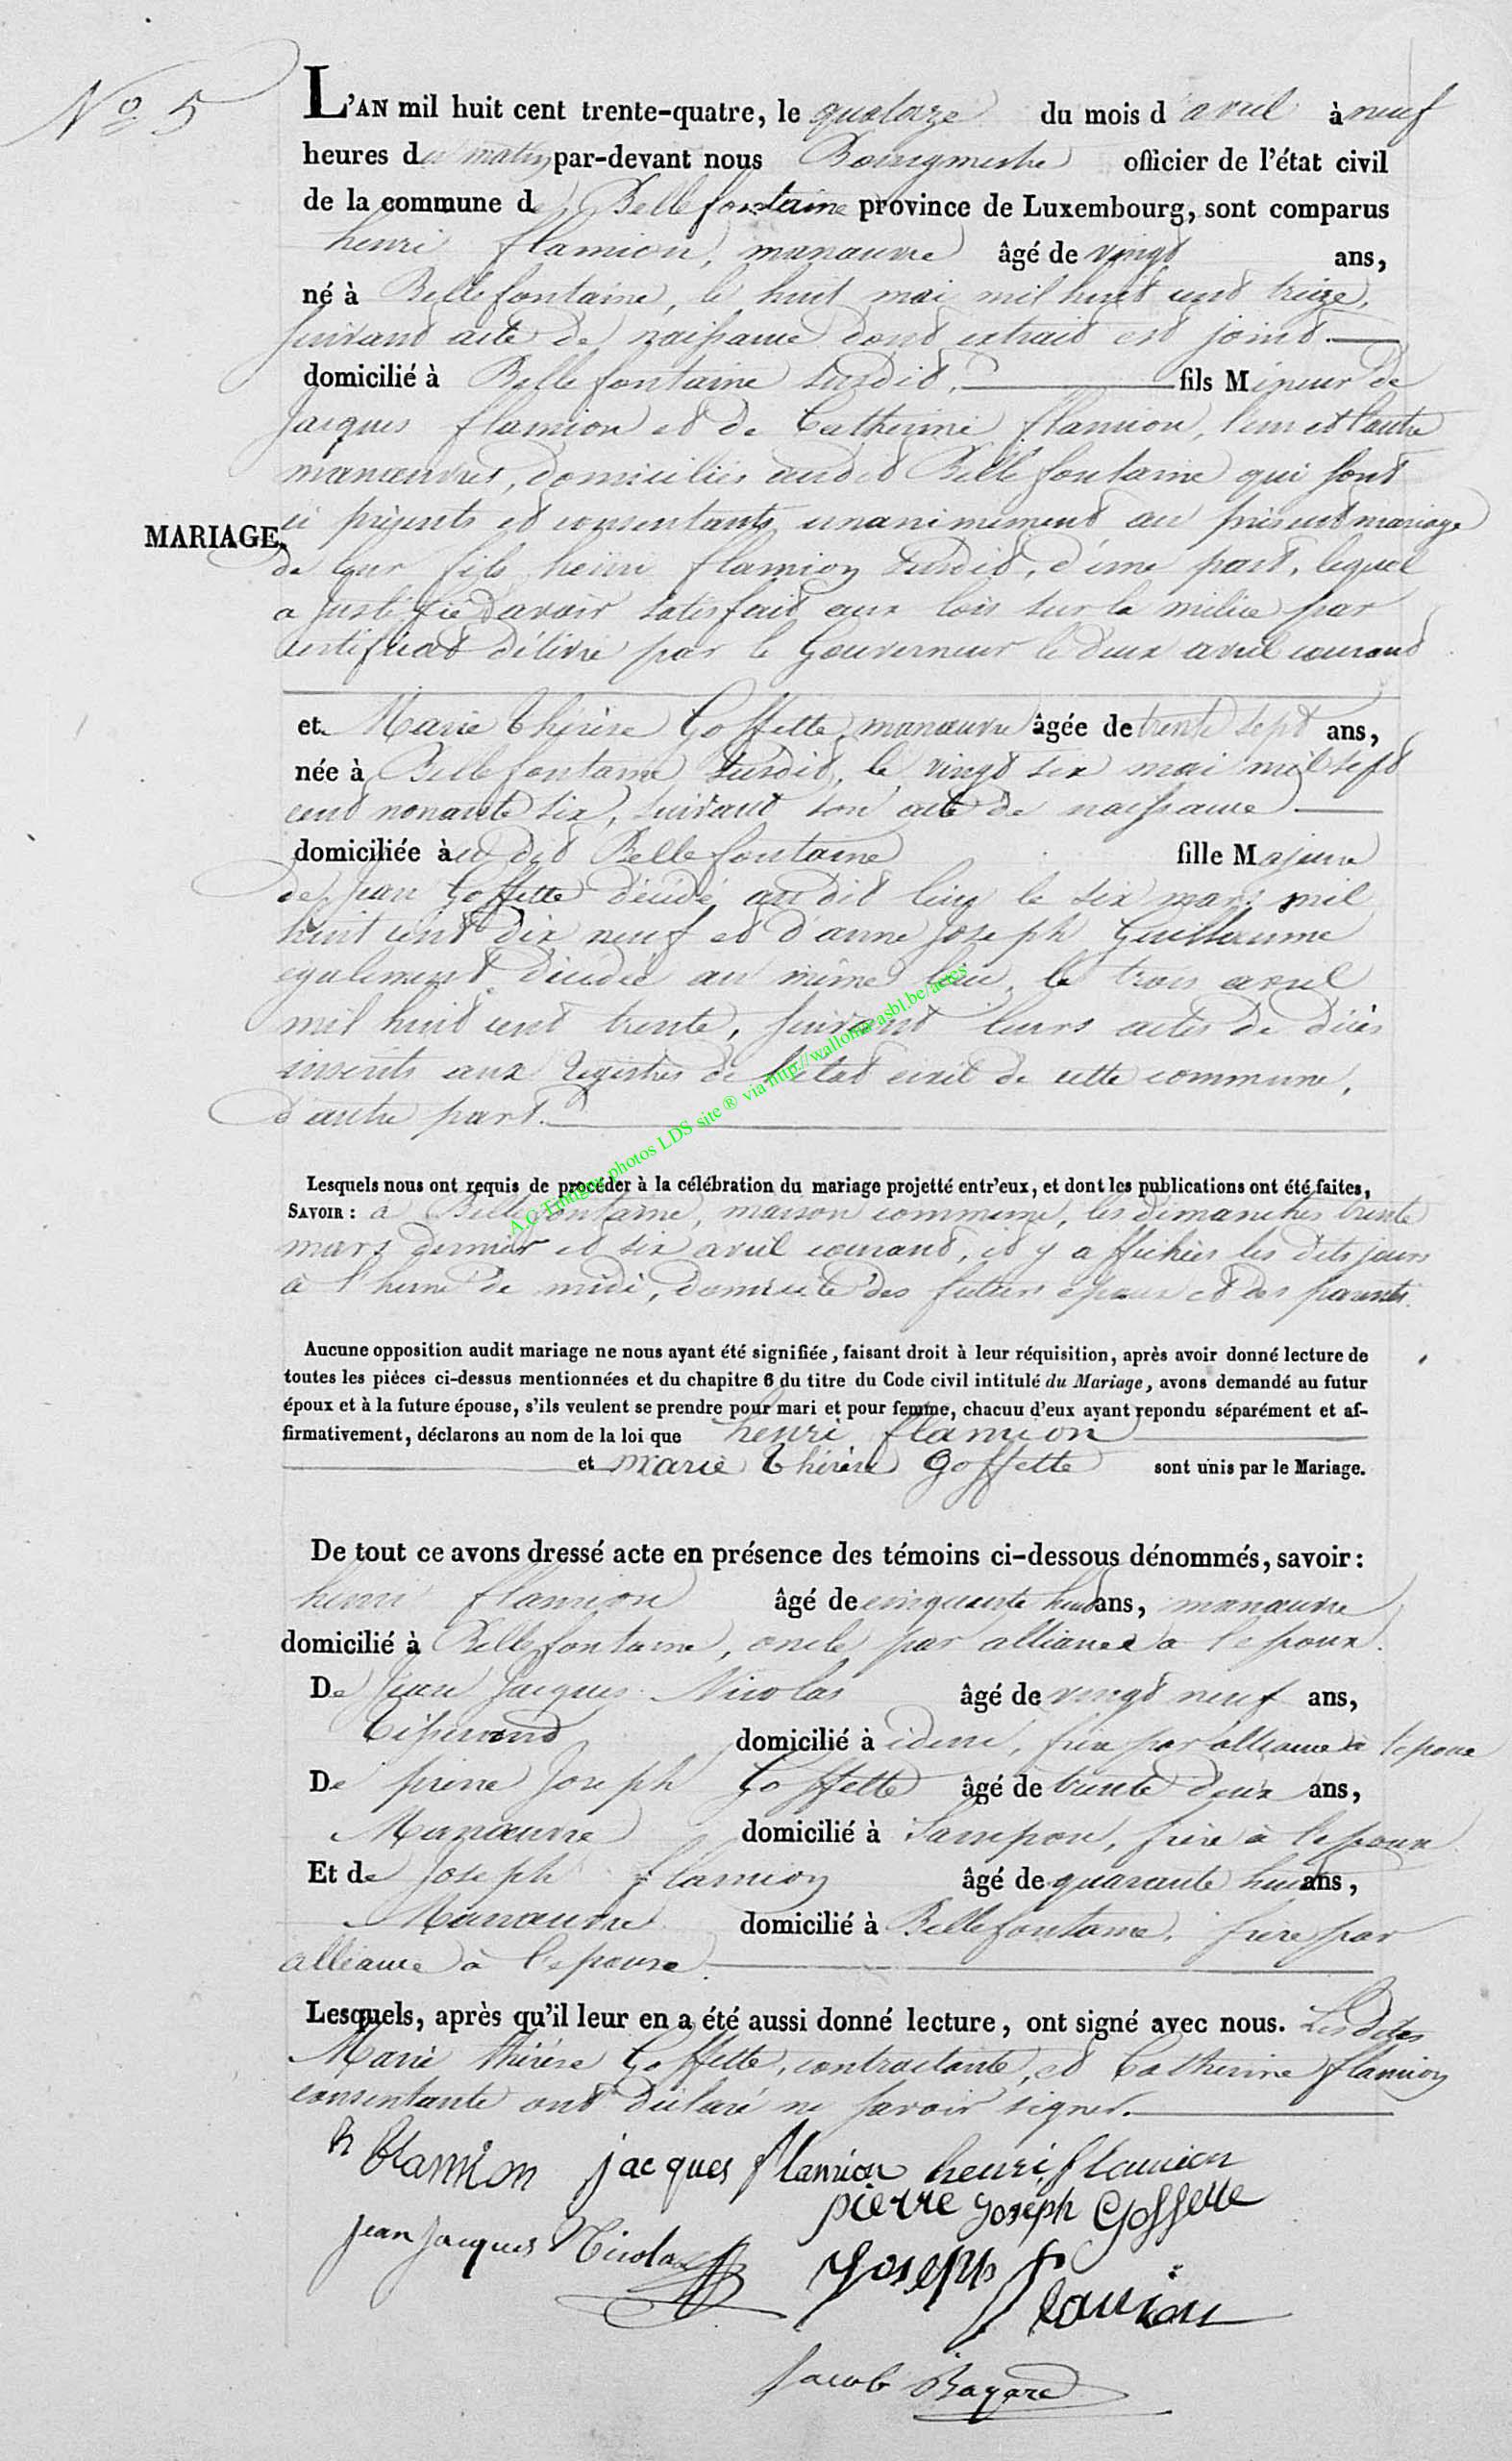 No 5
L'AN mil huit cent trente-quatre, le quatorze du mois d'avril à neuf
heures du matin par-devant nous Bourgmestre officier de l'état civil
de la commune de Bellefontaine province de Luxembourg, sont comparus
henri flamion, manœuvre âgé de vingt ans,
né à Bellefontaine, le huit mai mil huit cent treize,
suivant acte de naissance dont extrait est joint
domicilié à Bellefontaine susdit, fils Mineur de
Jacques flamion et de Catherine flamion, l'un et l'autre
manœuvres, domiciliés audit Bellefontaine qui sont
MARIAGE. ci présents et consentants unanimement au présent mariage
de leur fils henri flamion susdit, d'une part, lequel
a justifié d'avoir satisfait aux lois sur la milice par
certificat délivré par le Gouverneur le deux avril courant
et Marie thérèse Goffette, manœuvre âgée de trente sept ans,
née à Bellefontaine susdit, le vingt six mai mil sept
cent nonante six, suivant son acte de naissance
domiciliée à u dit Bellefontaine fille Majeure
de Jean Goffette décédé au dit lieu le six mars mil
huit cent dix neuf et d'anne Joseph Guillaume
également décédée au même lieu, le trois avril
mil huit cent trente, suivant leurs actes de décès
inscrits aux Registres de l'état civil de cette commune,
d'autre part.
Lesquels nous ont requis de procéder à la célébration du mariage projetté entr'eux, et dont les publications ont été faites,
SAVOIR : à Bellefontaine, maison commune, les dimanches trente
mars dernier et six avril courant, et y affichées les dits jours
à l'heure de midi, domicile des futurs époux et des parents.
Aucune opposition audit mariage ne nous ayant été signifiée, faisant droit à leur réquisition, après avoir donné lecture de
toutes les pièces ci-dessus mentionnées et du chapitre 6 du titre du Code civil intitulé du Mariage, avons demandé au futur
époux et à la future épouse, s'ils veulent se prendre pour mari et pour femme, chacuu d'eux ayant repondu séparément et af-
firmativement, déclarons au nom de la loi que henri flamion
et marie thérèse Goffette sont unis par le Mariage.
De tout ce avons dressé acte en présence des témoins ci-dessous dénommés, savoir :
henri flamion âgé de cinquante huit ans, manœuvre
domicilié à Bellefontaine, oncle par alliance à l'époux.
De Jean Jacques Nicolas âgé de vingt neuf ans,
Tisserand domicilié à idem, frère par alliance à l'épouse
De pierre Joseph Goffette âgé de trente deux ans,
Manœuvre domicilié à Lansepon, frère à l'épouse
Et de Joseph flamion âgé de quarante huit ans,
Manœuvre domicilié à Bellefontaine, frère par
alliance à l'épouse
Lesquels, après qu'il leur en a été aussi donné lecture, ont signé avec nous. Lesdites
Marie thérèse Goffette, contractante, et Catherine flamion
consentante ont déclaré ne savoir signer.
h flamion jacques flamion henri flamion
pierre joseph Goffette
jean jacques Nicolas
joseph flamion
Jacob Bayard
A.C Tintigny photos LDS site ® via http://wallonia-asbl.be/actes